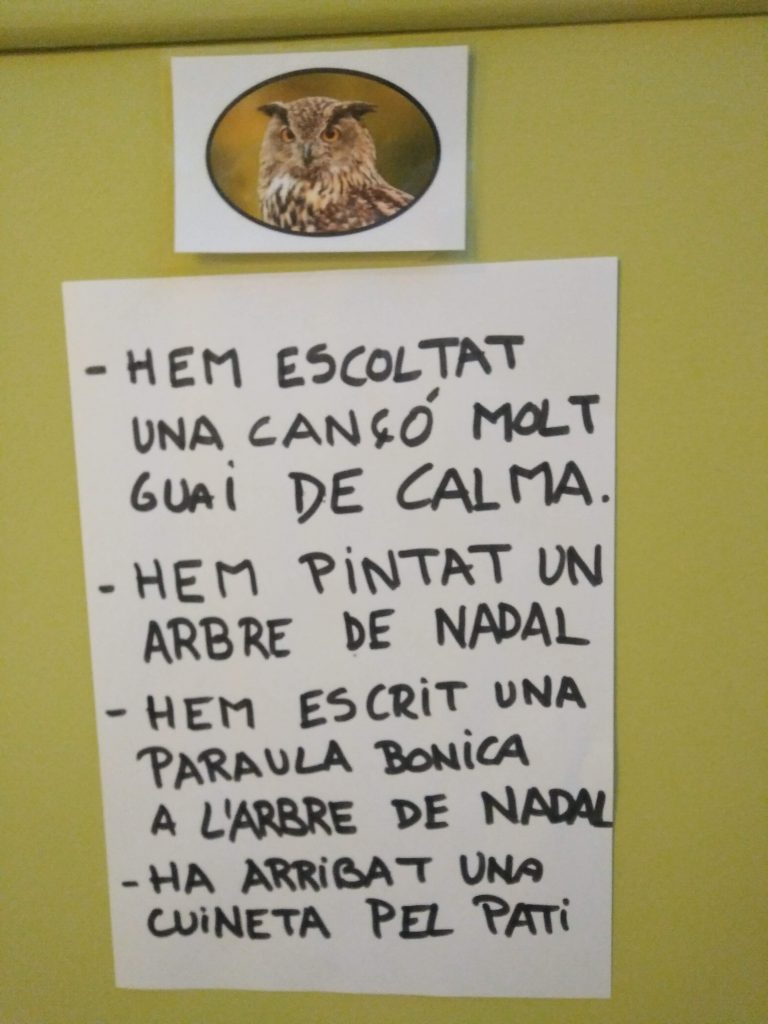 - HEM ESCOLTAT
UNA CANÇÓ MOLT
GUAI DE CALMA.
- HEM PINTAT UN
ARBRE DE NADAL
- HEM ESCRIT UNA
PARAULA BONICA
A L'ARBRE DE NADAL
- HA ARRIBAT UNA
CUINETA PEL PATI